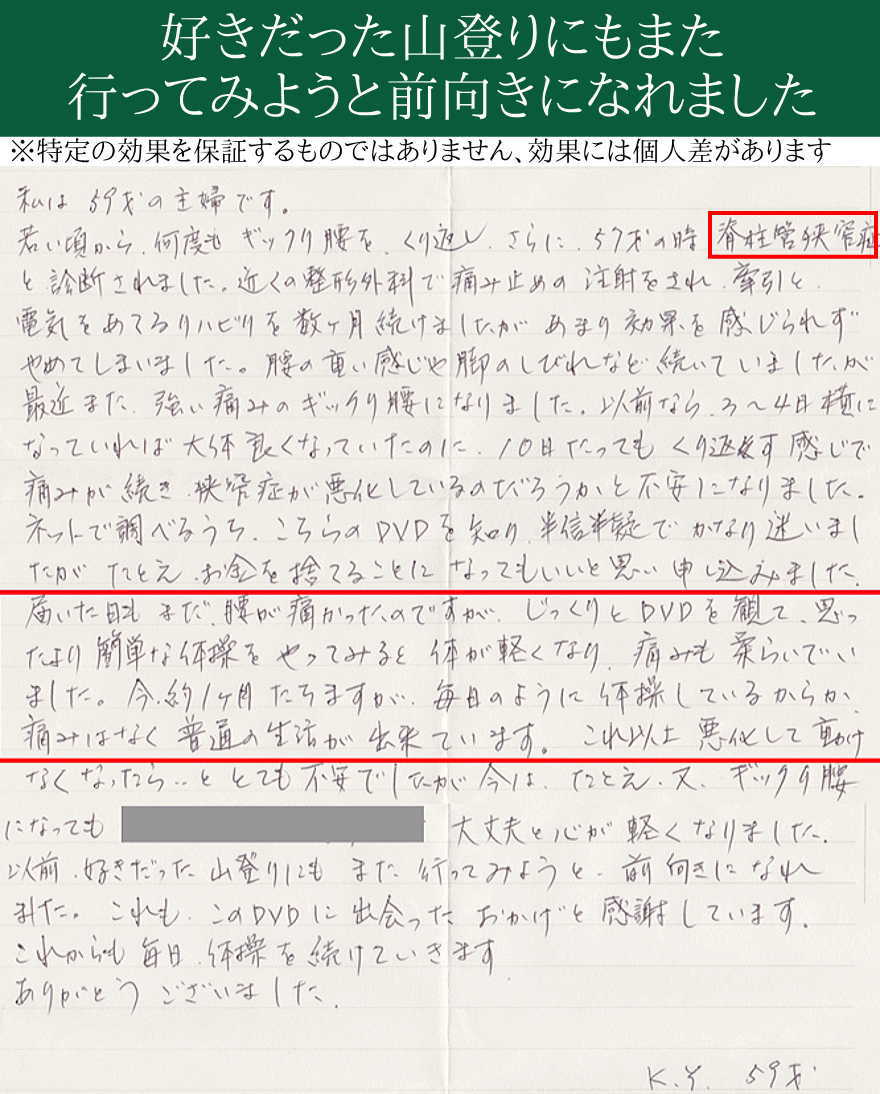 好きだった山登りにもまた
行ってみようと前向きになれました
※特定の効果を保証するものではありません、効果には個人差があります
私は 59才の主婦です。
若い頃から、何度も ギックリ腰を、くり返し、さらに、57才の時 脊柱管狭窄症
と診断されました。近くの整形外科で痛み止めの注射をされ、牽引と、
電気をあてるリハビリを数ヶ月続けましたが あまり効果を感じられず
やめてしまいました。腰の重い感じや脚のしびれなど続いていましたが
最近また、強い痛みのギックリ腰になりました。以前なら、3〜4日横に
なっていれば大体良くなっていたのに、10日たっても くり返す感じで
痛みが続き、狭窄症が悪化しているのだろうかと不安になりました。
ネットで調べるうち、こちらのDVDを知り、半信半疑でかなり迷いまし
たが たとえ、お金を捨てることになってもいいと思い申し込みました。
届いた日も まだ、腰が痛かったのですが、じっくりとDVDを観て、思っ
たより簡単な体操をやってみると体が軽くなり、痛みも柔らいでい
ました。今、約1ヶ月たちますが、毎日のように体操しているからか、
痛みはなく普通の生活が出来ています。これ以上悪化して動け
なくなったら‥と とても不安でしたが今は、たとえ、又、ギックリ腰
になっても 大丈夫と心が軽くなりました。
以前、好きだった山登りにも また行ってみようと、前向きになれ
ました。これも、このDVDに出会ったおかげと感謝しています。
これからも毎日、体操を続けていきます
ありがとうございました。
K.Y. 59才